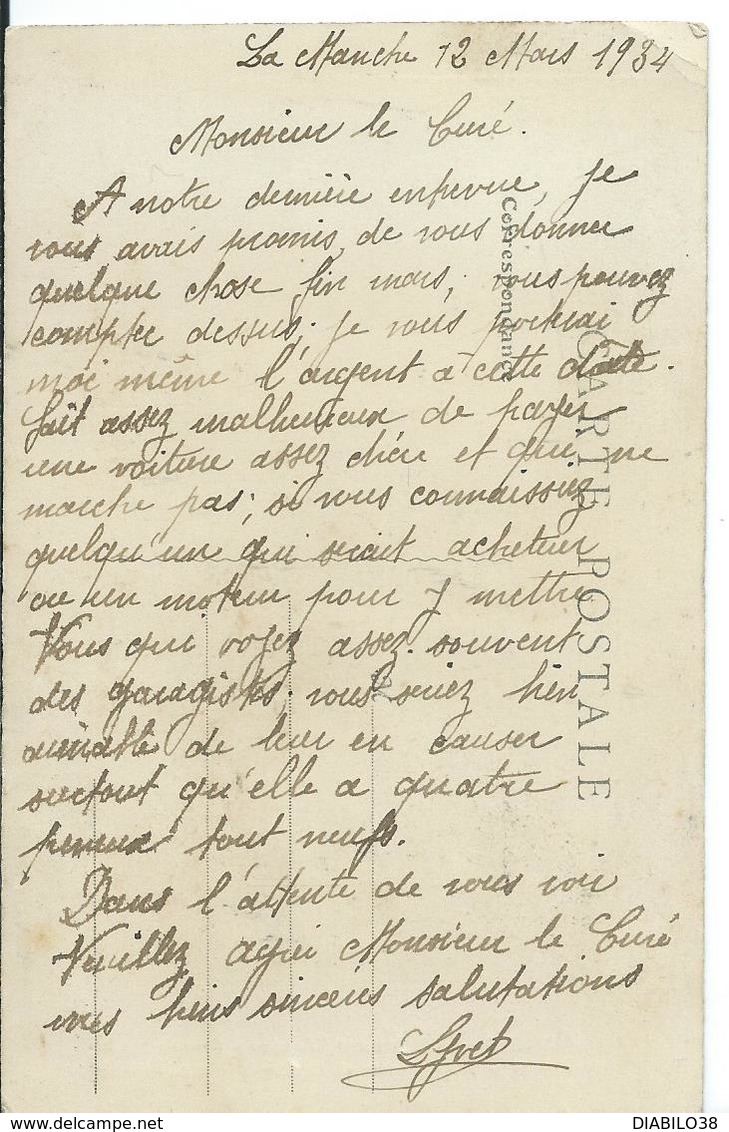 La Manche 12 Mars 1934
Monsieur le Curé.
A notre dernière entrevue, je
vous avais promis de vous donner
quelque chose fin mars, vous pouvez
compter dessus; je vous porterai
moi même l'argent à cette date.
Suit assez malheureux de payer
une voiture assez chère et qui ne
marche pas; si vous connaissiez
quelqu'un qui serait acheteur
ou un moteur pour y mettre
Vous qui voyez assez souvent
des garagistes, vous seriez bien
aimable de leur en causer
surtout qu'elle a quatre
pneux tout neufs.
Dans l'attente de vous voir
Veuillez agréi Monsieur le Curé
mes biens sincères salutations
Correspondance
CARTE POSTALE
DIABILO38